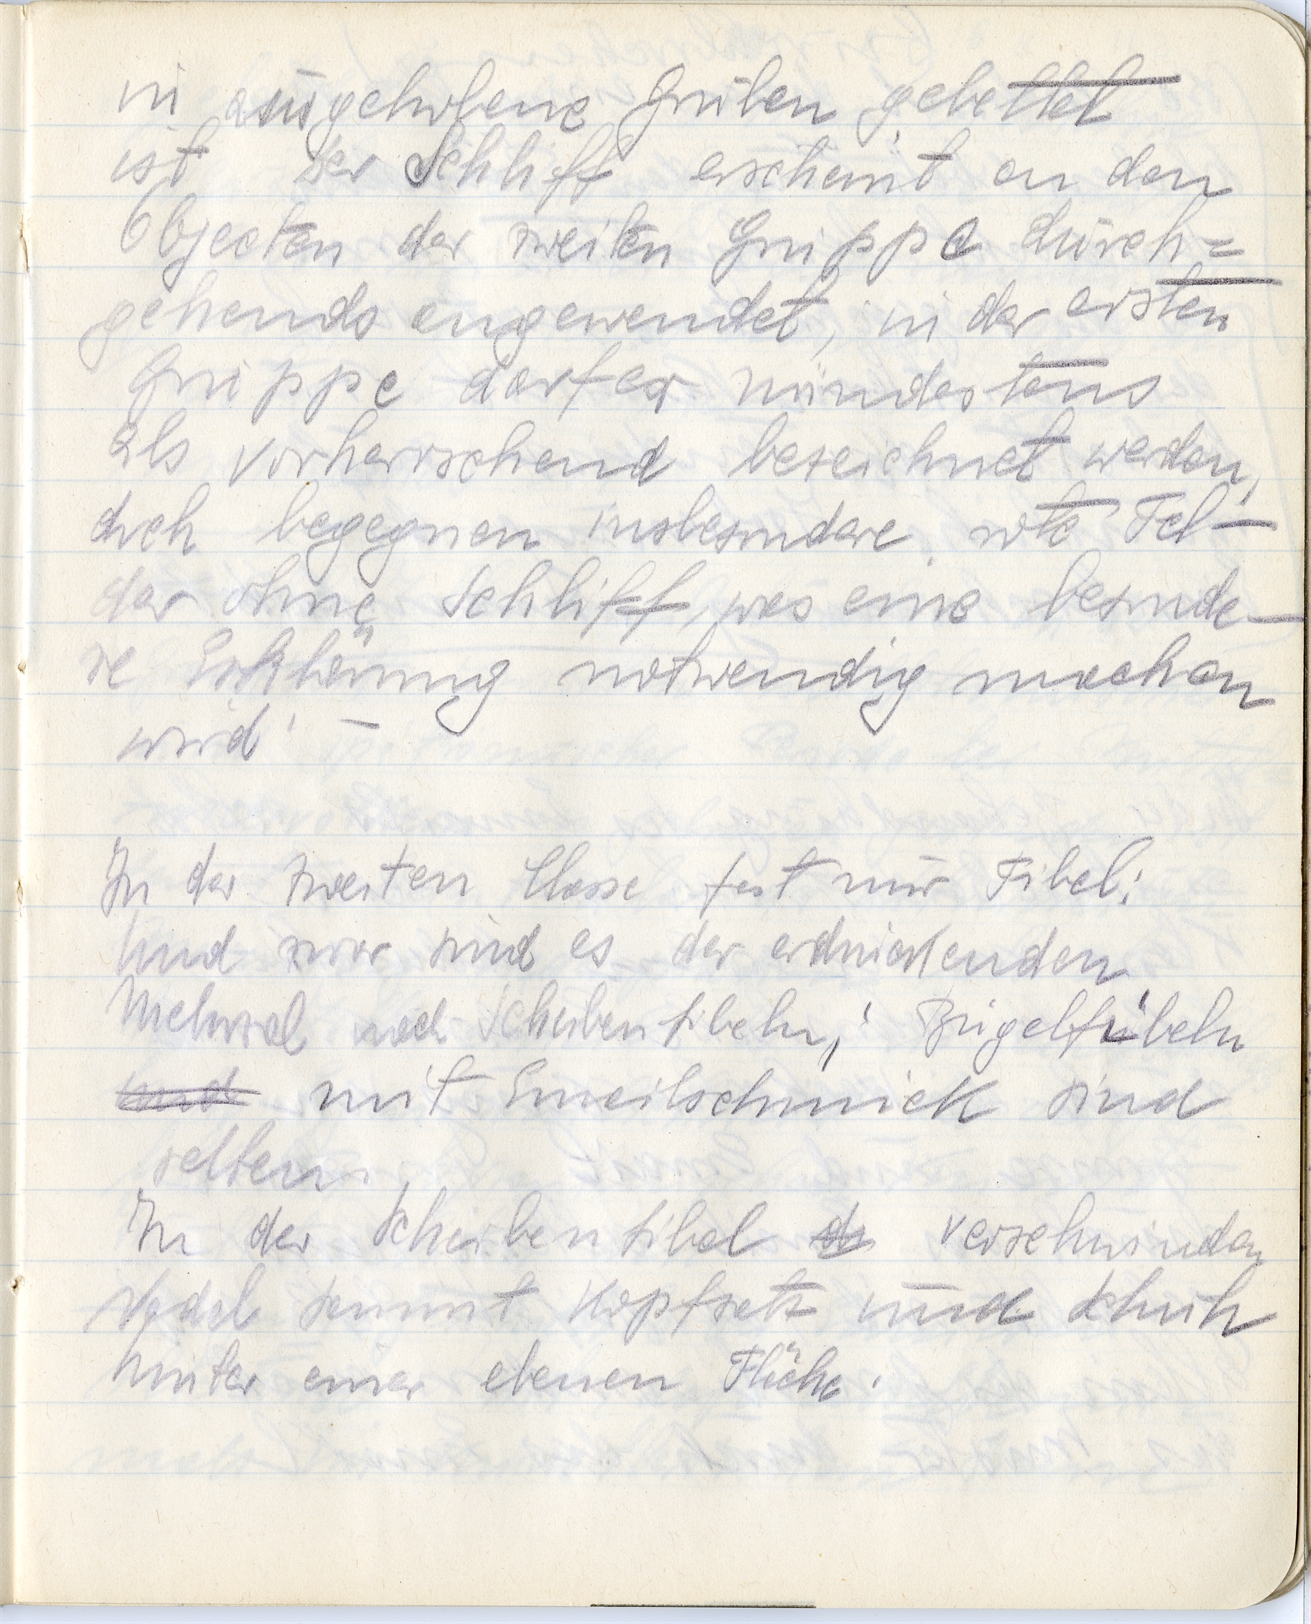 in ausgehobene Gruben gebettet
ist. Der Schliff erscheint an den
Objecten der zweiten Gruppe durch=
gehends angewendet, in der ersten
Gruppe darf er mindestens
als vorherrschend bezeichnet werden,
doch begegnen insbesondere rote Fel-
der ohne Schliff, was eine besonde-
re Erklärung notwendig machen
wird. –
In der zweiten Classe fast nur Fibel:
Und zwar sind es der
Mehrzal nach Scheibenfibeln; Bügelfibeln
und mit Emailschmuck sind
selten.
In der Scheibenfibel verschwinden
Nadel sammt Kopfsatz und Schuh
hinter einer ebenen Fläche.